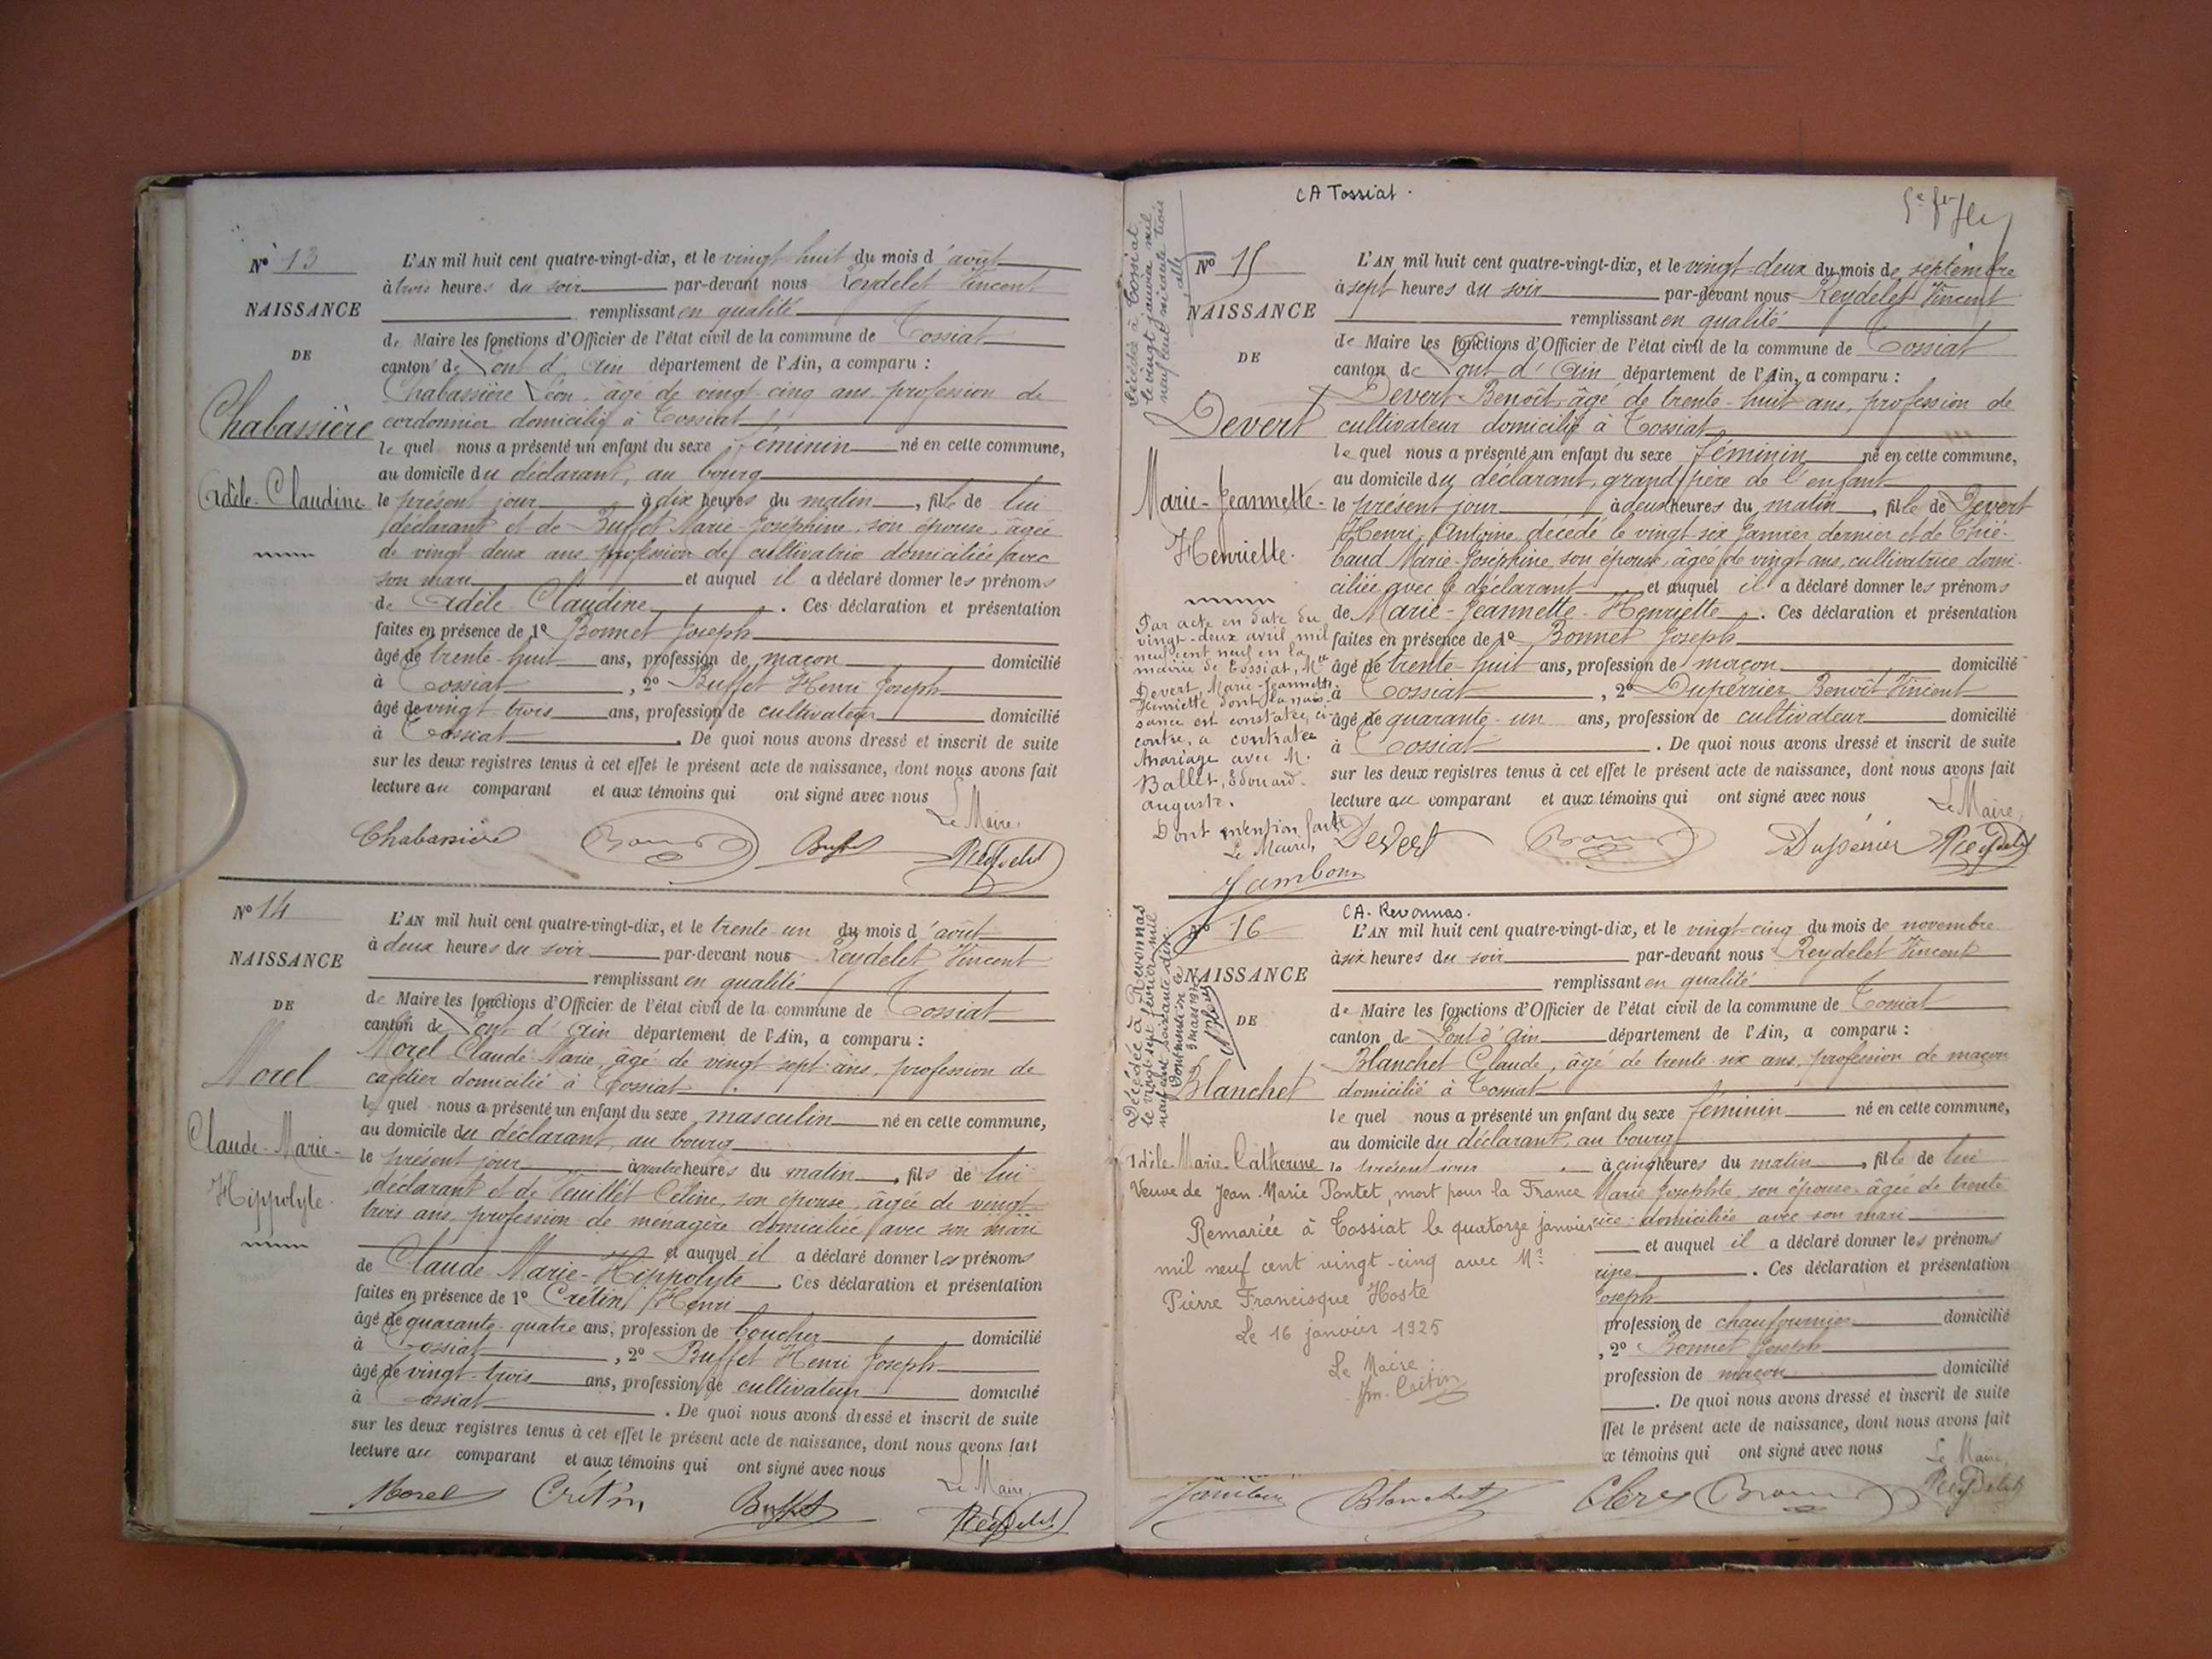 N° 13
NAISSANCE
DE
Chabassière
Adèle-Claudine
L'AN mil huit cent quatre-vingt-dix, et le vingt huit du mois d'août
à trois heures du soir par-devant nous Reydelet Vincent
remplissant en qualité
de Maire les fonctions d'Officier de l'état civil de la commune de Tossiat
canton de Pont d'Ain département de l'Ain, a comparu :
Chabassière Léon, âgé de vingt cinq ans, profession de
cordonnier domicilié à Tossiat
le quel nous a présenté un enfant du sexe féminin né en cette commune,
au domicile du déclarant, au bourg
le présent jour à dix heures du matin, fille de lui
déclarant et de Buffet Marie-Joséphine, son épouse, âgée
de vingt deux ans, profession de cultivatrice domiciliée avec
son mari et auquel il a déclaré donner les prénoms
de Adèle Claudine. Ces déclaration et présentation
faites en présence de 1° Bonnet Joseph
âgé de trente-huit ans, profession de maçon domicilié
à Tossiat, 2° Buffet Henri Joseph
âgé de vingt-trois ans, profession de cultivateur domicilié
à Tossiat. De quoi nous avons dressé et inscrit de suite
sur les deux registres tenus à cet effet le présent acte de naissance, dont nous avons fait
lecture au comparant et aux témoins qui ont signé avec nous
Le Maire,
Chabassière Buffet Reydelet
N° 14
NAISSANCE
DE
Morel
Claude-Marie-
Hippolyte.
L'AN mil huit cent quatre-vingt-dix, et le trente-un du mois d'août
à deux heures du soir par-devant nous Reydelet Vincent
remplissant en qualité
de Maire les fonctions d'Officier de l'état civil de la commune de Tossiat
canton de Pont d'Ain département de l'Ain, a comparu :
Morel Claude-Marie, âgé de vingt sept ans, profession de
cafetier domicilié à Tossiat
le quel nous a présenté un enfant du sexe masculin né en cette commune,
au domicile du déclarant, au bourg
le présent jour à quatre heures du matin, fils de lui
déclarant et de Céline, son épouse, âgée de vingt
trois ans, profession de ménagère domiciliée avec son mari
et auquel il a déclaré donner les prénoms
de Claude Marie-Hippolyte. Ces déclaration et présentation
faites en présence de 1° Crétin Henri
âgé de quarante-quatre ans, profession de boucher domicilié
à Tossiat, 2° Buffet Henri Joseph
âgé de vingt-trois ans, profession de cultivateur domicilié
à Tossiat. De quoi nous avons dressé et inscrit de suite
sur les deux registres tenus à cet effet le présent acte de naissance, dont nous avons fait
lecture au comparant et aux témoins qui ont signé avec nous
Le Maire,
Morel Crétin Buffet Reydelet
CA Tossiat.
Décédée à Tossiat
le vingt janvier mil
neuf cent soixante trois
N° 15
NAISSANCE
DE
Devert
Marie-Jeannette-
Henriette.
Par acte en date du
vingt-deux avril mil
neuf cent neuf en la
mairie de Tossiat, Mlle
Devert, Marie-Jeannette
Henriette dont la nais-
sance est constatée ci-
contre, a contracté
mariage avec M.
Ballet, Edouard-
auguste.
Dont mention faite
Le Maire,
Jambon
L'AN mil huit cent quatre-vingt-dix, et le vingt-deux du mois de septembre
à sept heures du soir par-devant nous Reydelet Vincent
remplissant en qualité
de Maire les fonctions d'Officier de l'état civil de la commune de Tossiat
canton de Pont d'Ain département de l'Ain, a comparu :
Devert Benoît, âgé de trente-huit ans, profession de
cultivateur domicilié à Tossiat
le quel nous a présenté un enfant du sexe féminin né en cette commune,
au domicile du déclarant, grand père de l'enfant
le présent jour à deux heures du matin, fille de Devert
Henri Antoine décédé le vingt six janvier dernier et de Thié-
baud Marie-Joséphine son épouse, âgée de vingt ans, cultivatrice domi-
ciliée avec le déclarant et auquel il a déclaré donner les prénoms
de Marie-Jeannette-Henriette. Ces déclaration et présentation
faites en présence de 1° Bonnet Joseph
âgé de trente-huit ans, profession de maçon domicilié
à Tossiat, 2° Dupérrier Benoît Vincent
âgé de quarante-un ans, profession de cultivateur domicilié
à Tossiat. De quoi nous avons dressé et inscrit de suite
sur les deux registres tenus à cet effet le présent acte de naissance, dont nous avons fait
lecture au comparant et aux témoins qui ont signé avec nous
Le Maire,
Devert Dupérrier Reydelet
Décédée à Revonnas
le vingt sept février mil
neuf cent soixante dix.
Dont mention le
3 mars 1970
N° 16
NAISSANCE
DE
Blanchet
Adèle Marie Catherine
CA. Revonnas.
L'AN mil huit cent quatre-vingt-dix, et le vingt-cinq du mois de novembre
à six heures du soir par-devant nous Reydelet Vincent
remplissant en qualité
de Maire les fonctions d'Officier de l'état civil de la commune de Tossiat
canton de Pont d'Ain département de l'Ain, a comparu :
Blanchet Claude, âgé de trente-six ans, profession de maçon
domicilié à Tossiat
le quel nous a présenté un enfant du sexe féminin né en cette commune,
au domicile du déclarant, au bourg
le présent jour à cinq heures du matin, fille de lui
Marie Josephte, son épouse, âgée de trente
domiciliée avec son mari
et auquel il a déclaré donner les prénoms
rine. Ces déclaration et présentation
Joseph
profession de chaufournier domicilié
, 2° Bonnet Joseph
profession de maçon domicilié
. De quoi nous avons dressé et inscrit de suite
ffet le présent acte de naissance, dont nous avons fait
x témoins qui ont signé avec nous
Le Maire,
Veuve de Jean Marie Pontet, mort pour la France
Remariée à Tossiat le quatorze janvier
mil neuf cent vingt-cinq avec Mr
Pierre Francisque Hoste
Le 16 janvier 1925
Le Maire :
Jm. Crétin
Jambon Blanchet Clerc Reydelet